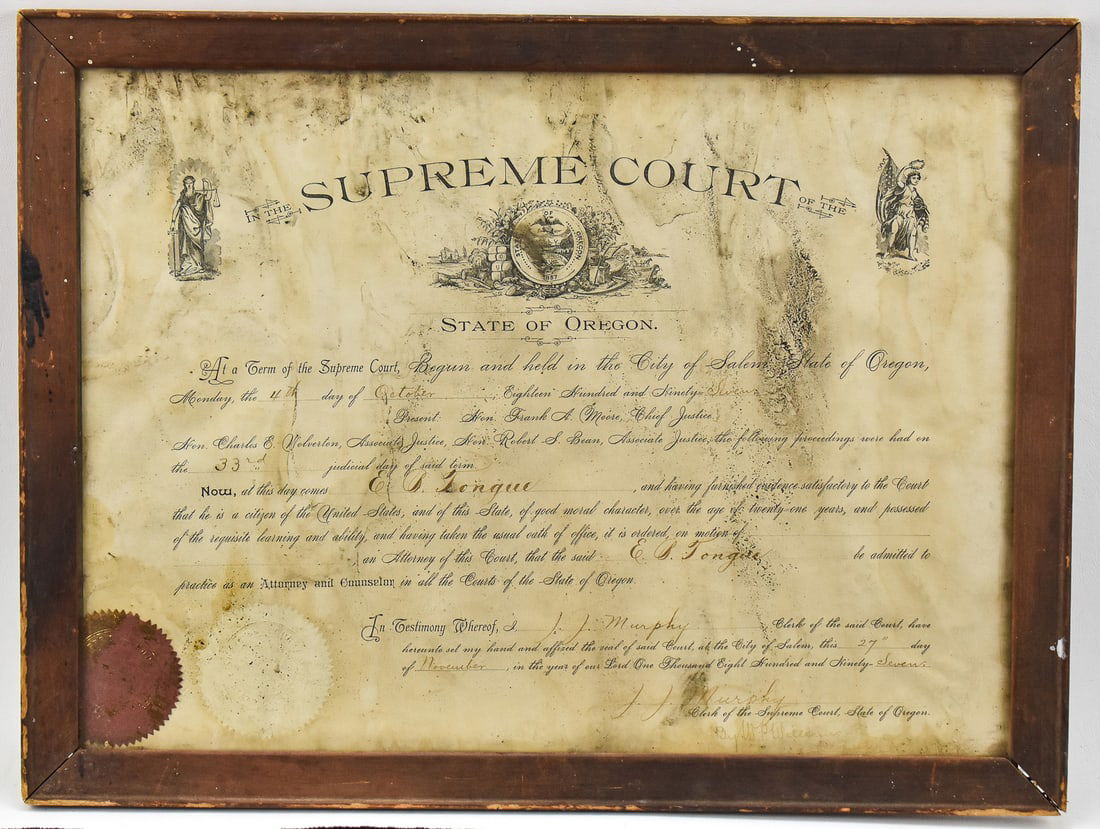 IN THE SUPREME COURT OF THE
STATE OF OREGON.
At a Term of the Supreme Court, Begun and held in the City of Salem, State of Oregon,
Monday, the 4th day of October, Eighteen Hundred and Ninety-Seven
Present: Hon. Frank A. Moore, Chief Justice
Hon. Charles E. Wolverton, Associate Justice, Hon. Robert S. Bean, Associate Justice, the following proceedings were had on
the 33rd judicial day of said term
Now, at this day comes E. B. Tongue, and having furnished evidence satisfactory to the Court
that he is a citizen of the United States, and of this State, of good moral character, over the age of twenty-one years, and possessed
of the requisite learning and ability, and having taken the usual oath of office, it is ordered, on motion of
an Attorney of this Court, that the said E. B. Tongue be admitted to
practice as an Attorney and Counselor in all the Courts of the State of Oregon.
In Testimony Whereof, I J. J. Murphy, Clerk of the said Court, have
hereunto set my hand and affixed the seal of said Court, at the City of Salem, this 27" day
of November, in the year of our Lord One Thousand Eight Hundred and Ninety-Seven
J. J. Murphy
Clerk of the Supreme Court, State of Oregon.